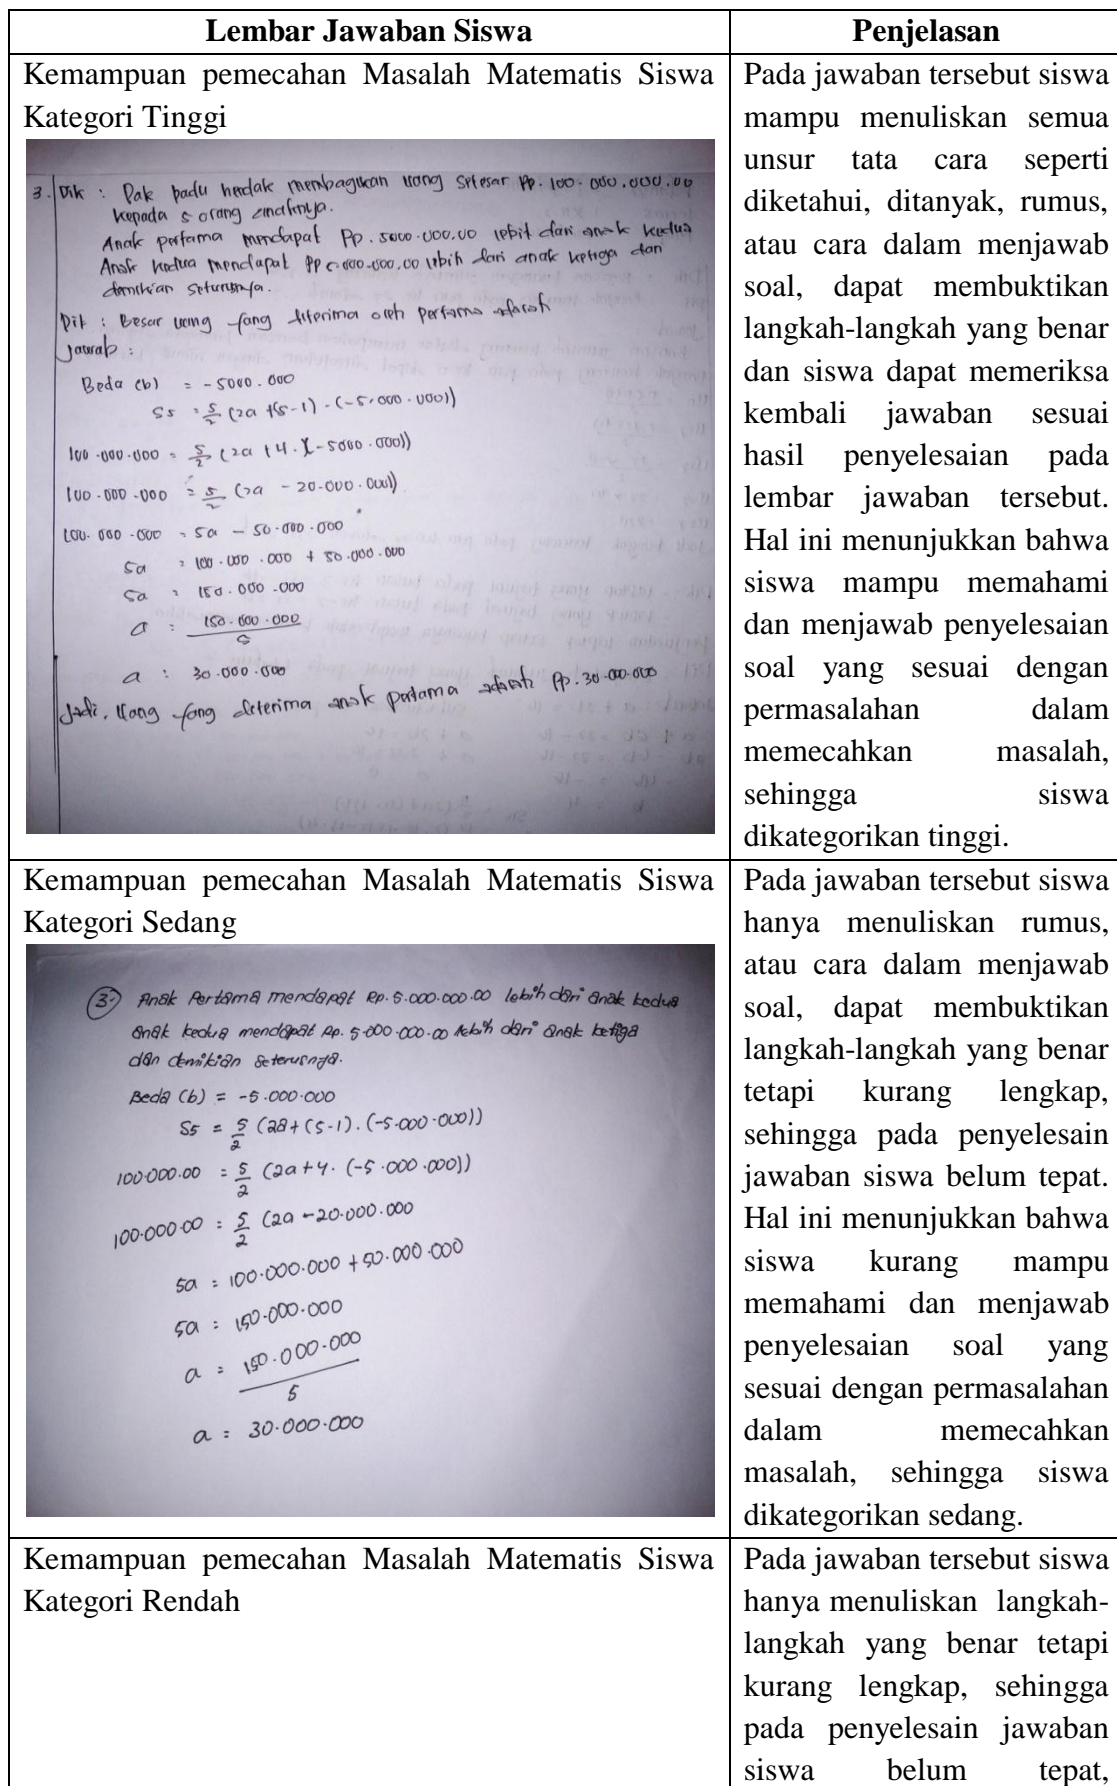 Lembar Jawaban Siswa
Penjelasan
Kemampuan pemecahan Masalah Matematis Siswa
Kategori Tinggi
3. Dik : Pak padu hendak membagikan uang sebesar Rp. 100.000.000.00
kepada 5 orang anaknya.
Anak pertama mendapat Rp. 5000.000.00 lebih dari anak kedua
Anak kedua mendapat Rp 5.000.000.00 lebih dari anak ketiga dan
demikian seterusnya.
Dit : Besar uang yang diterima oleh pertama adalah
Jawab :
Beda (b) = -5000.000
S5 = 5/2 (2a +(5-1) . (-5.000.000))
100.000.000 = 5/2 (2a + 4.(-5000.000))
100.000.000 = 5/2 (2a - 20.000.000)
100.000.000 = 5a - 50.000.000
5a = 100.000.000 + 50.000.000
5a = 150.000.000
a = 150.000.000 / 5
a = 30.000.000
Jadi, Uang yang diterima anak pertama adalah Rp. 30.000.000
Pada jawaban tersebut siswa
mampu menuliskan semua
unsur tata cara seperti
diketahui, ditanyak, rumus,
atau cara dalam menjawab
soal, dapat membuktikan
langkah-langkah yang benar
dan siswa dapat memeriksa
kembali jawaban sesuai
hasil penyelesaian pada
lembar jawaban tersebut.
Hal ini menunjukkan bahwa
siswa mampu memahami
dan menjawab penyelesaian
soal yang sesuai dengan
permasalahan dalam
memecahkan masalah,
sehingga siswa
dikategorikan tinggi.
Kemampuan pemecahan Masalah Matematis Siswa
Kategori Sedang
3. Anak Pertama mendapat Rp. 5.000.000.00 lebih dari anak kedua
anak kedua mendapat Rp. 5.000.000.00 lebih dari anak ketiga
dan demikian seterusnya.
Beda (b) = -5.000.000
S5 = 5/2 (2a + (5-1) . (-5.000.000))
100.000.00 = 5/2 (2a + 4. (-5.000.000))
100.000.00 = 5/2 (2a - 20.000.000
5a = 100.000.000 + 50.000.000
5a = 150.000.000
a = 150.000.000 / 5
a = 30.000.000
Pada jawaban tersebut siswa
hanya menuliskan rumus,
atau cara dalam menjawab
soal, dapat membuktikan
langkah-langkah yang benar
tetapi kurang lengkap,
sehingga pada penyelesain
jawaban siswa belum tepat.
Hal ini menunjukkan bahwa
siswa kurang mampu
memahami dan menjawab
penyelesaian soal yang
sesuai dengan permasalahan
dalam memecahkan
masalah, sehingga siswa
dikategorikan sedang.
Kemampuan pemecahan Masalah Matematis Siswa
Kategori Rendah
Pada jawaban tersebut siswa
hanya menuliskan langkah-
langkah yang benar tetapi
kurang lengkap, sehingga
pada penyelesain jawaban
siswa belum tepat,